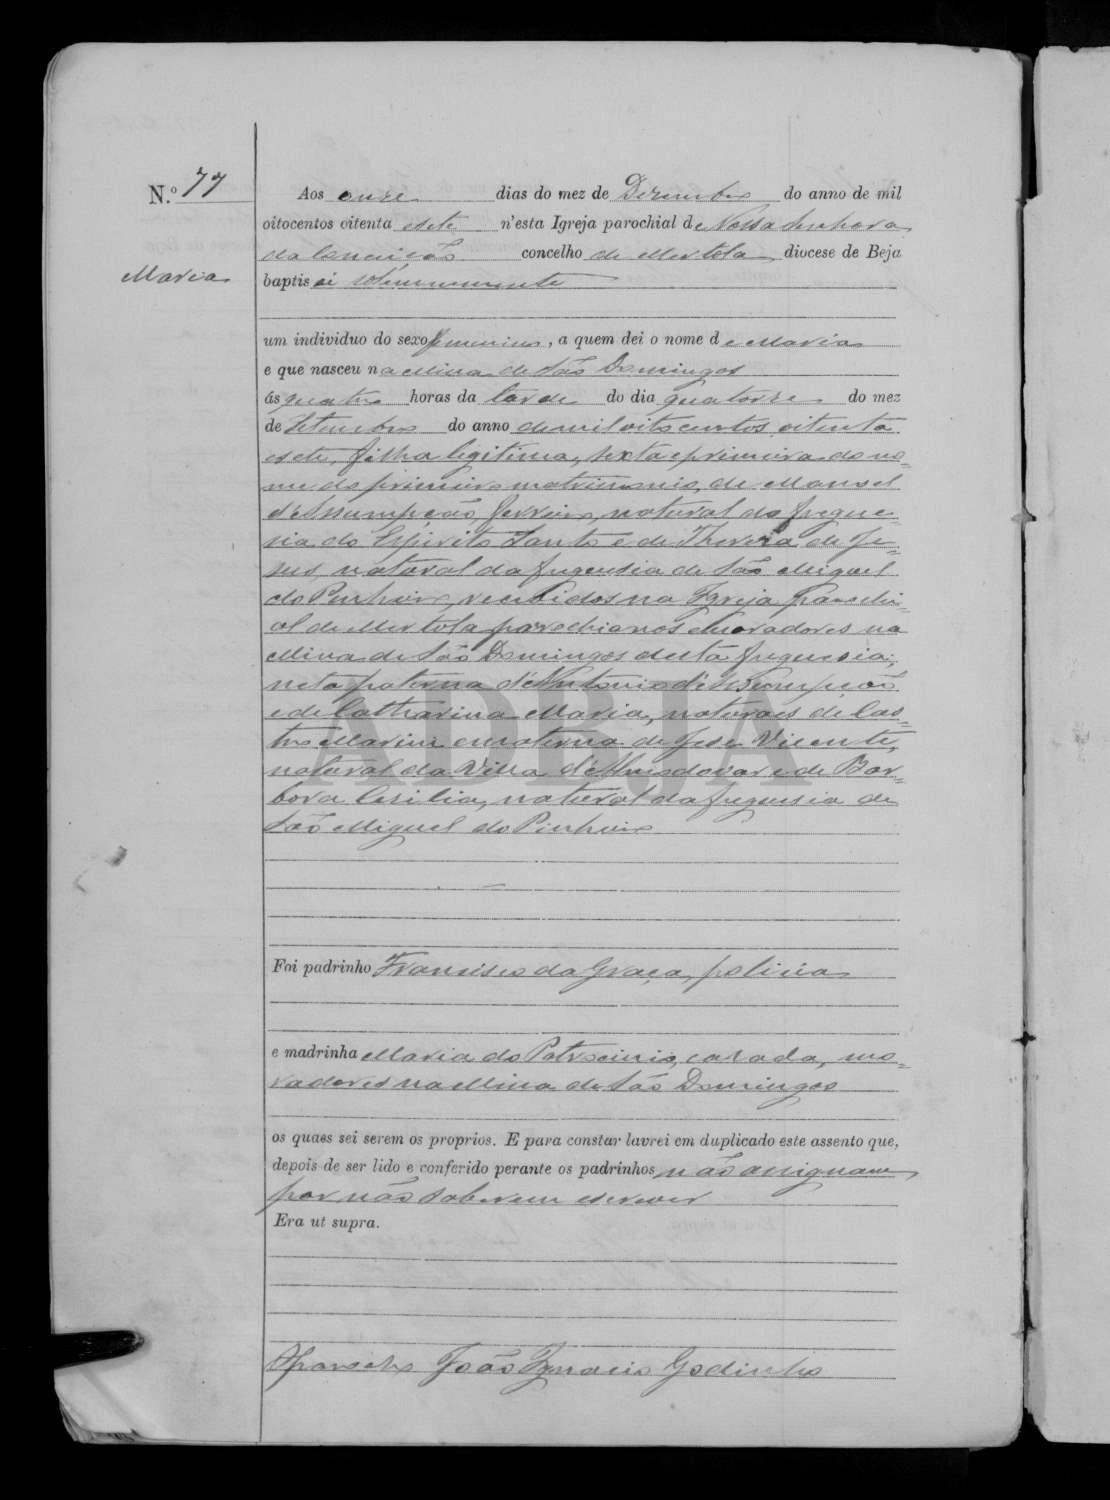 N.º 77
Aos onze dias do mez de Dezembro do anno de mil
oitocentos oitenta e sete n'esta Igreja parochial de Nossa Senhora
da Conceição concelho de Mertola diocese de Beja
Maria
baptisei solemnemente
um individuo do sexo femenino, a quem dei o nome de Maria
e que nasceu na Mina de São Domingos
ás quatro horas da tarde do dia quatorze do mez
de Setembro do anno de mil oitocentos oitenta
e sete, filha legitima, sexta e primeira do no-
me do primeiro matrimonio, de Manoel
d'Assumpção, ferreiro, natural da fregue-
sia do Espirito Santo e de Thereza de Je-
sus, natural da freguesia de São Miguel
do Pinheiro, recebidos na Igreja parochi-
al de Mertola parochianos e moradores na
Mina de São Domingos desta freguesia;
neta paterna d'Antonio d'Assumpção
e de Catharina Maria, naturaes de Cas-
tro Marim e materna de José Vicente,
natural da Villa d'Almodovar e de Bar-
bora Cesilia, natural da freguesia de
São Miguel do Pinheiro
ADBJA
Foi padrinho Francisco da Graça, policia
e madrinha Maria do Patrocinio, casada, mo-
radores na Mina de São Domingos
os quaes sei serem os proprios. E para constar lavrei em duplicado este assento que,
depois de ser lido e conferido perante os padrinhos, não assignam
por não saberem escrever
Era ut supra.
O Parocho João Ignacio Godinho